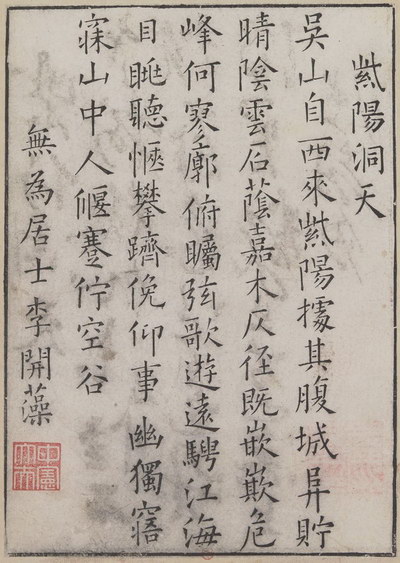 紫陽洞天
吳山自西來紫陽據其腹城貯
晴陰雲石蔭嘉木仄徑既嵌欹危
峰何寥廓俯矚弦歌遊遠騁江海
目眺聽愜攀躋俛仰事幽獨寤
寐山中人偃蹇佇空谷
無為居士李開藻